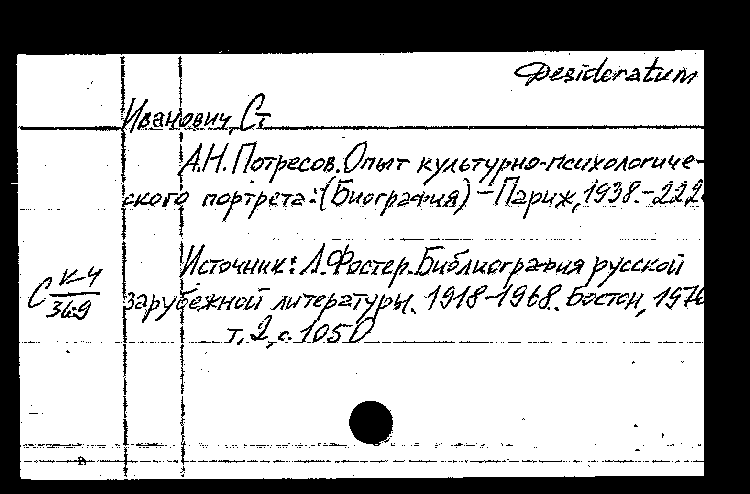 Desideratum
Иванович, Ст
А.Н. Потресов. Опыт культурно-психологиче-
ского портрета: (Биография) – Париж, 1938. – 222
Источник: Л. Фостер. Библиография русской
С К-4/369
зарубежной литературы. 1918–1968. Бостон, 1970
т. 2, с. 1050